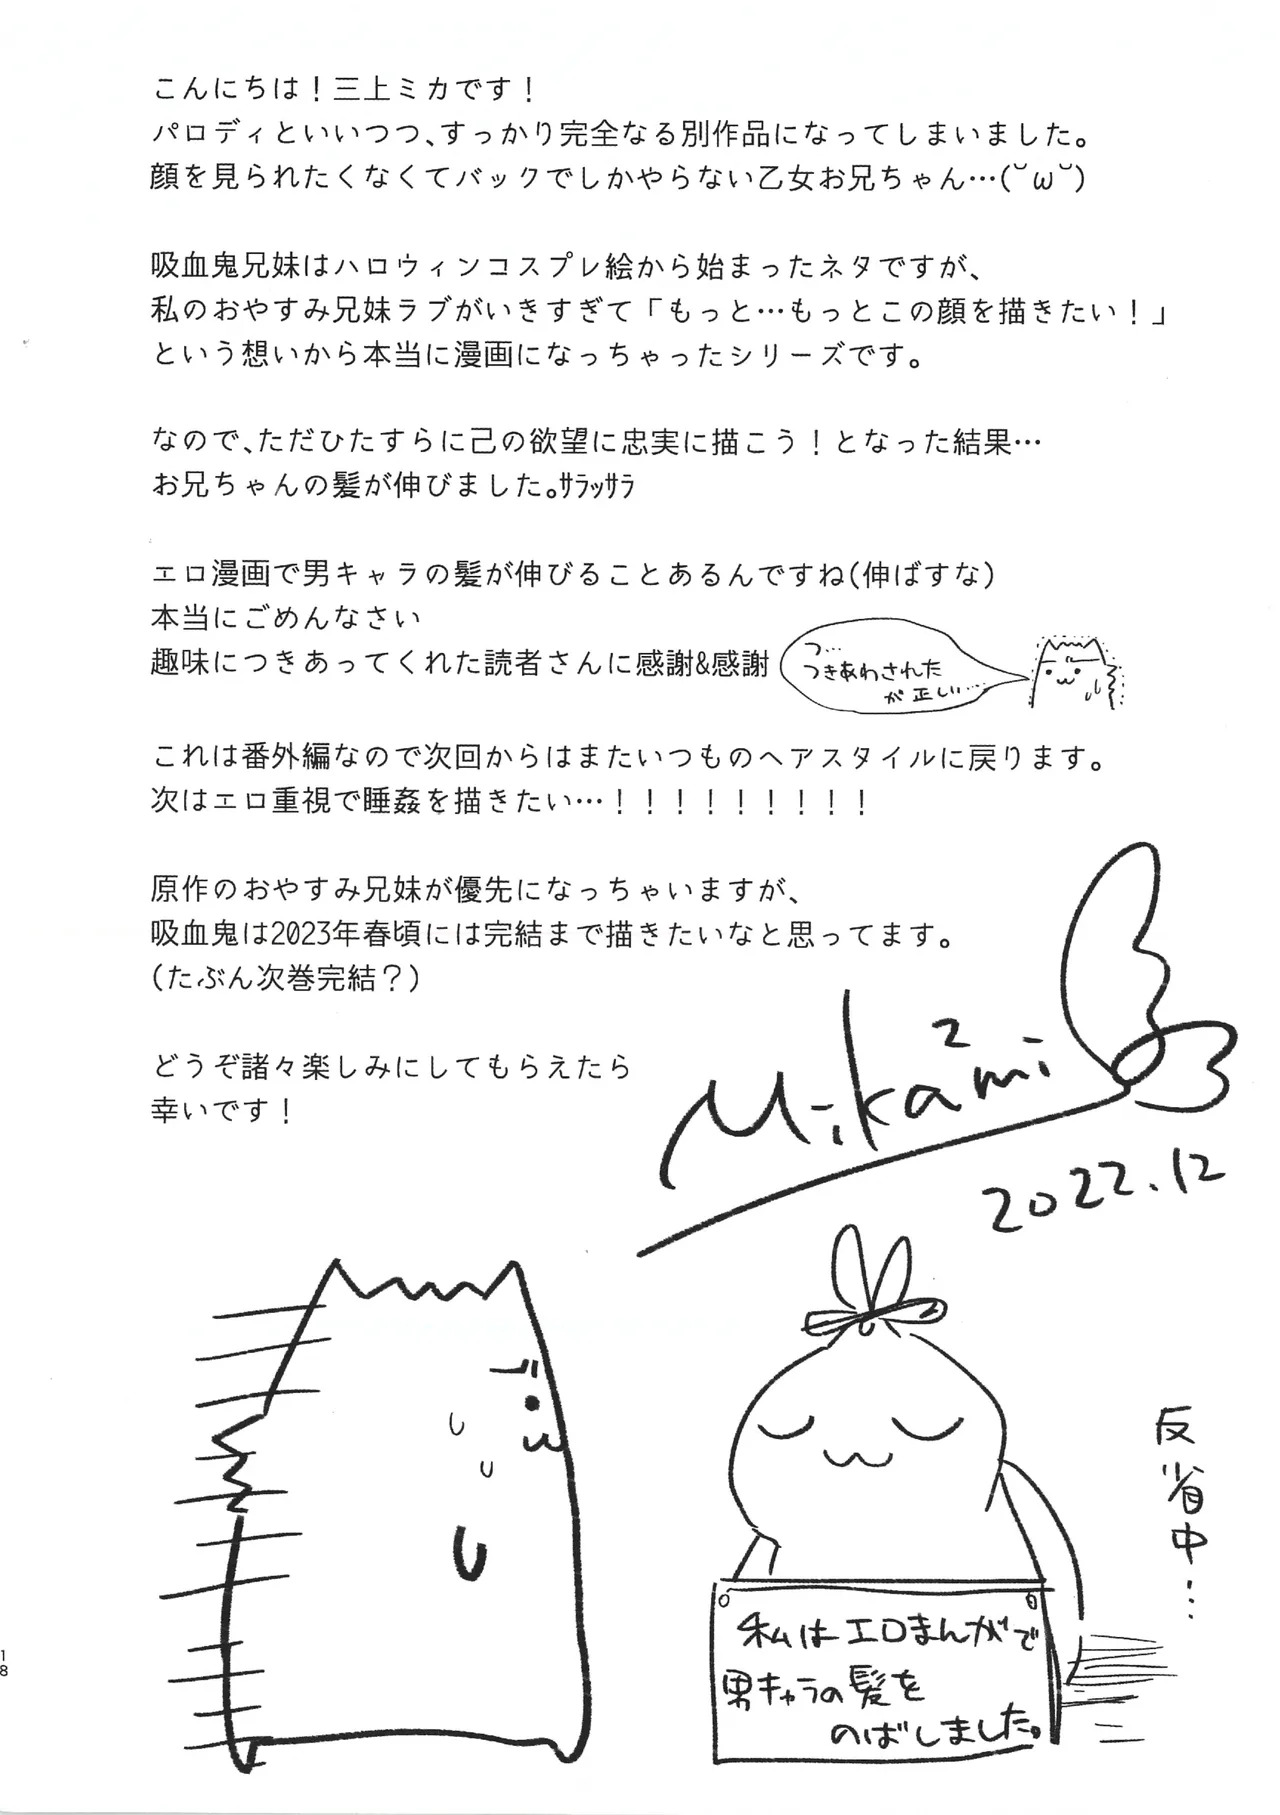 こんにちは！三上ミカです！
パロディといいつつ、すっかり完全なる別作品になってしまいました。
顔を見られたくなくてバックでしかやらない乙女お兄ちゃん…(˘ω˘)
吸血鬼兄妹はハロウィンコスプレ絵から始まったネタですが、
私のおやすみ兄妹ラブがいきすぎて「もっと…もっとこの顔を描きたい！」
という想いから本当に漫画になっちゃったシリーズです。
なので、ただひたすらに己の欲望に忠実に描こう！となった結果…
お兄ちゃんの髪が伸びました。ｻﾗｯｻﾗ
エロ漫画で男キャラの髪が伸びることあるんですね(伸ばすな)
本当にごめんなさい
趣味につきあってくれた読者さんに感謝&感謝
つ…
つきあわされた
が正しい…
これは番外編なので次回からはまたいつものヘアスタイルに戻ります。
次はエロ重視で睡姦を描きたい…！！！！！！！！！
原作のおやすみ兄妹が優先になっちゃいますが、
吸血鬼は2023年春頃には完結まで描きたいなと思ってます。
(たぶん次巻完結？)
どうぞ諸々楽しみにしてもらえたら
幸いです！
Mikami
2022.12
反省中…
私はエロまんがで
男キャラの髪を
のばしました。
18